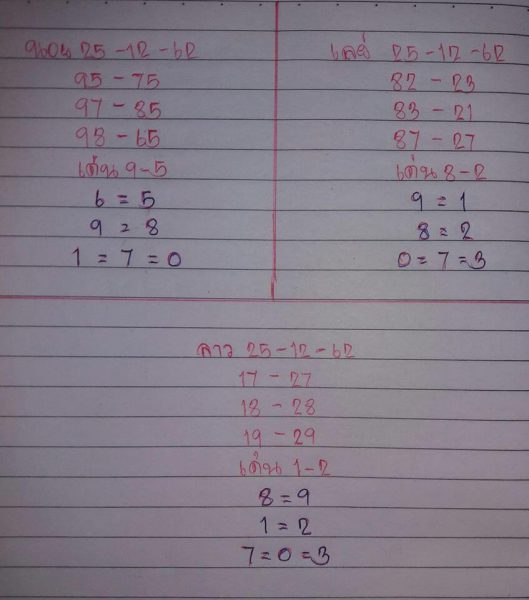 25-12-62
95-75
97-85
98-65
เด่น 9-5
6 = 5
9 = 8
1 = 7 = 0
25-12-62
82-23
83-21
87-27
เด่น 8-2
9 = 1
8 = 2
0 = 7 = 3
ลาว 25-12-62
17-27
18-28
19-29
เด่น 1-2
8 = 9
1 = 2
7 = 0 = 3